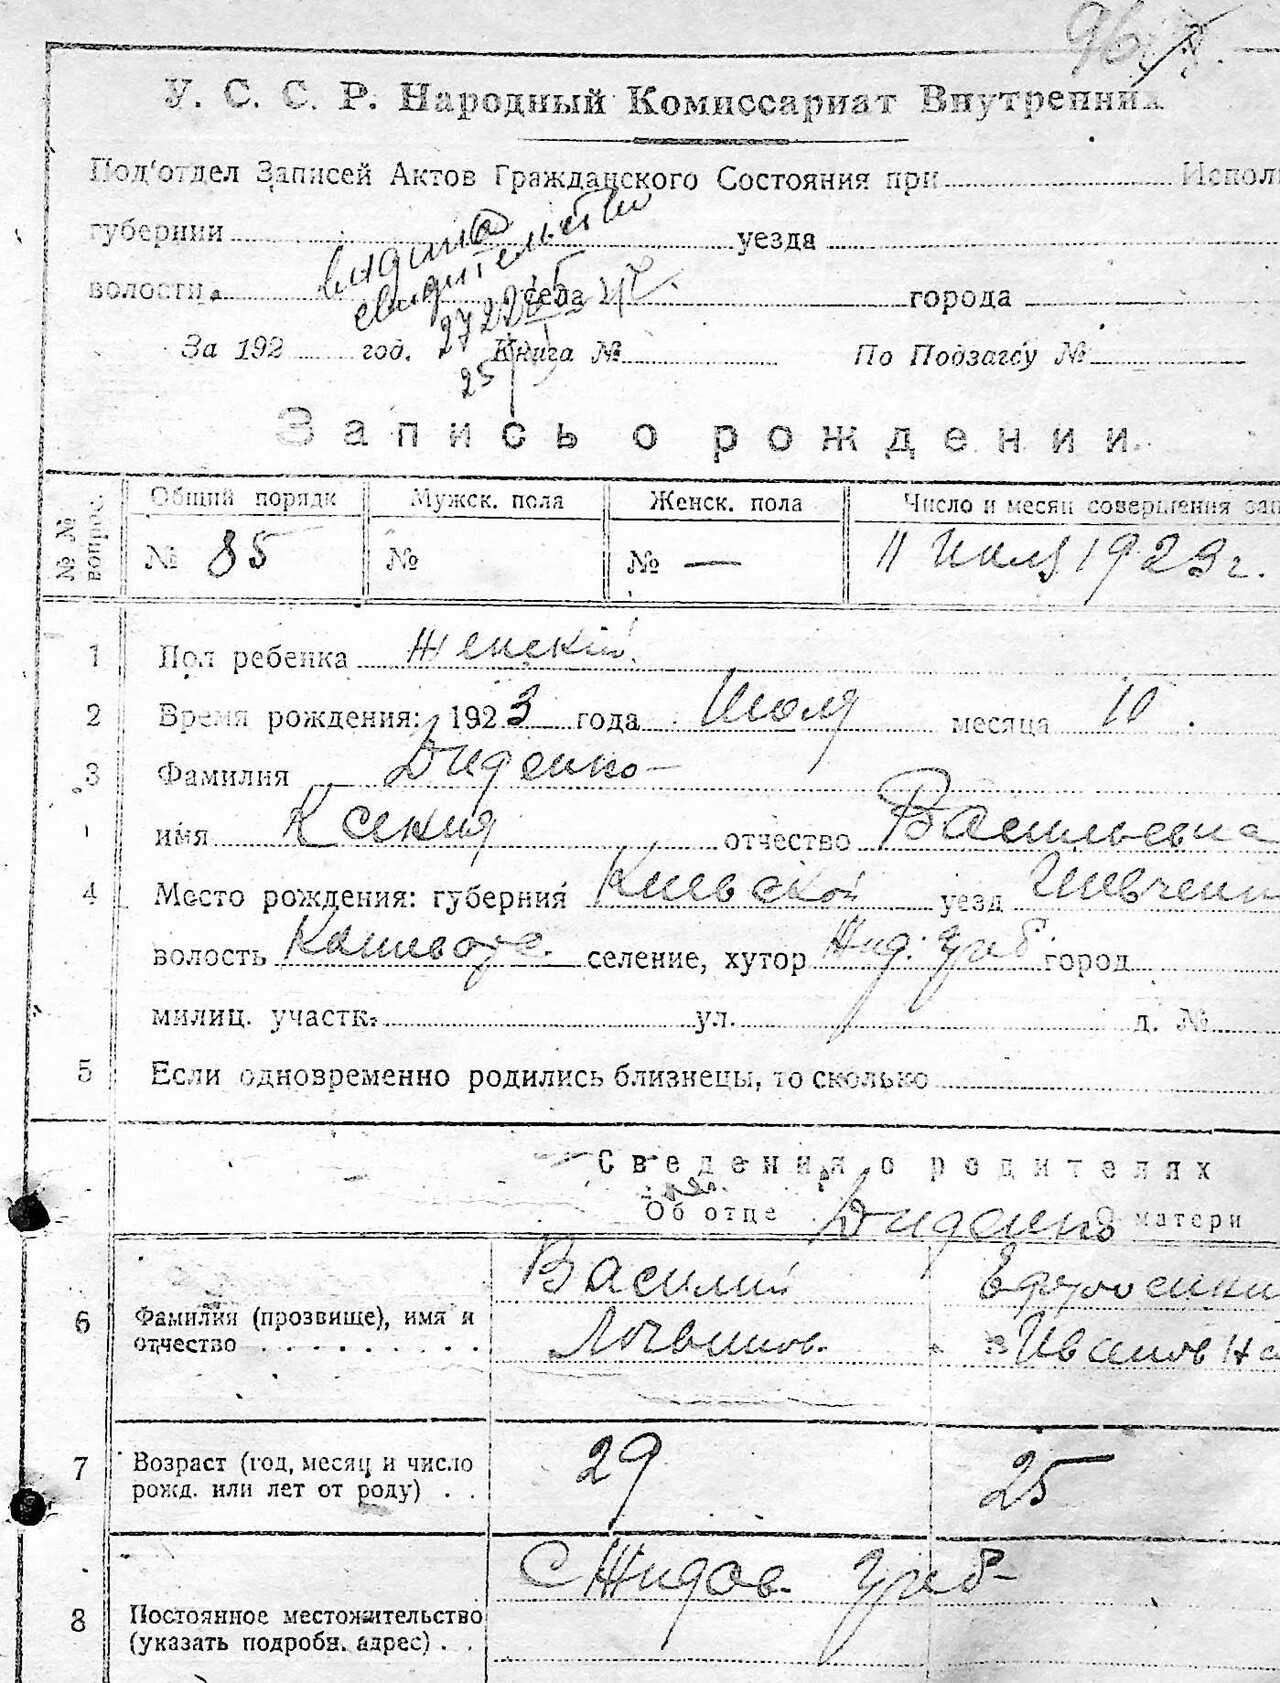 96
У. С. С. Р. Народный Комиссариат Внутренних
Под'отдел Записей Актов Гражданского Состояния при Испол
губернии уезда
волости села города
выдано
свидетельство
За 192 год. Книга № По Подзагсу №
25
Запись о рождении.
№ № вопрос. Общий порядк Мужск. пола Женск. пола Число и месяц совершения зап
№ 85 № № — 11 Июля 1923 г.
1 Пол ребенка Женский
2 Время рождения: 1923 года Июля месяца 10
3 Фамилия Диденко
имя Ксения отчество Васильевна
4 Место рождения: губерния Киевской уезд Шевченк
волость селение, хутор Жид. Греб. город
милиц. участк. ул. д. №
5 Если одновременно родились близнецы, то сколько
Сведения о родителях
Об отце Диденко О матери
6 Фамилия (прозвище), имя и отчество Василий Ефросини
Логвинов. Ивановна
7 Возраст (год, месяц и число рожд. или лет от роду) 29 25
8 Постоянное местожительство (указать подробн. адрес) С Жидов. Греб-